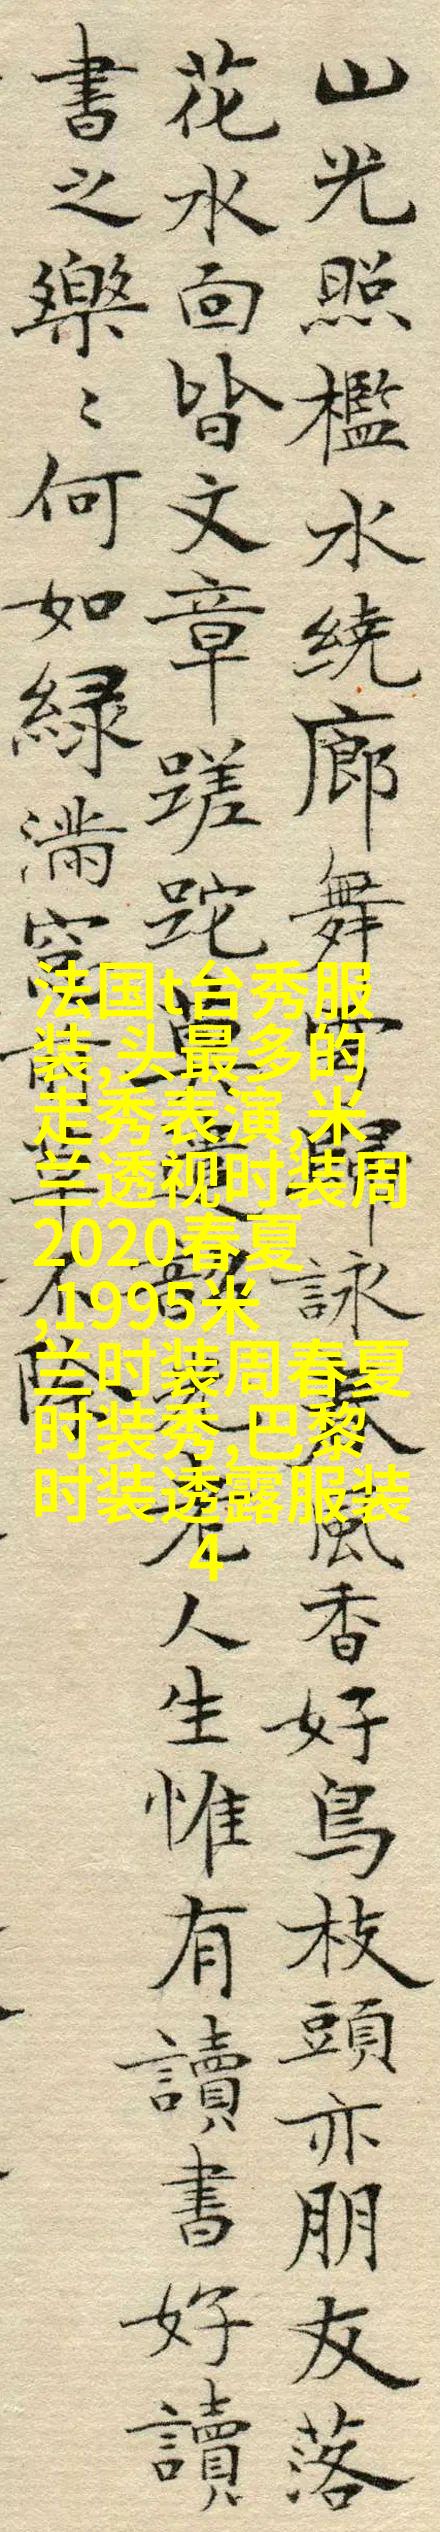 山光照檻水绕廊舞雩歸詠春風香好鳥枝頭亦朋友落
花水面皆文章蹉跎莫遣韶光老人生惟有讀書好讀
書之樂〻何如綠滿窓前草不除
法国t台秀服
装,头最多的
走秀表演,米
兰透视时装周
2020春夏
,1995米
兰时装周春夏
时装秀,巴黎
时装透露服装
4